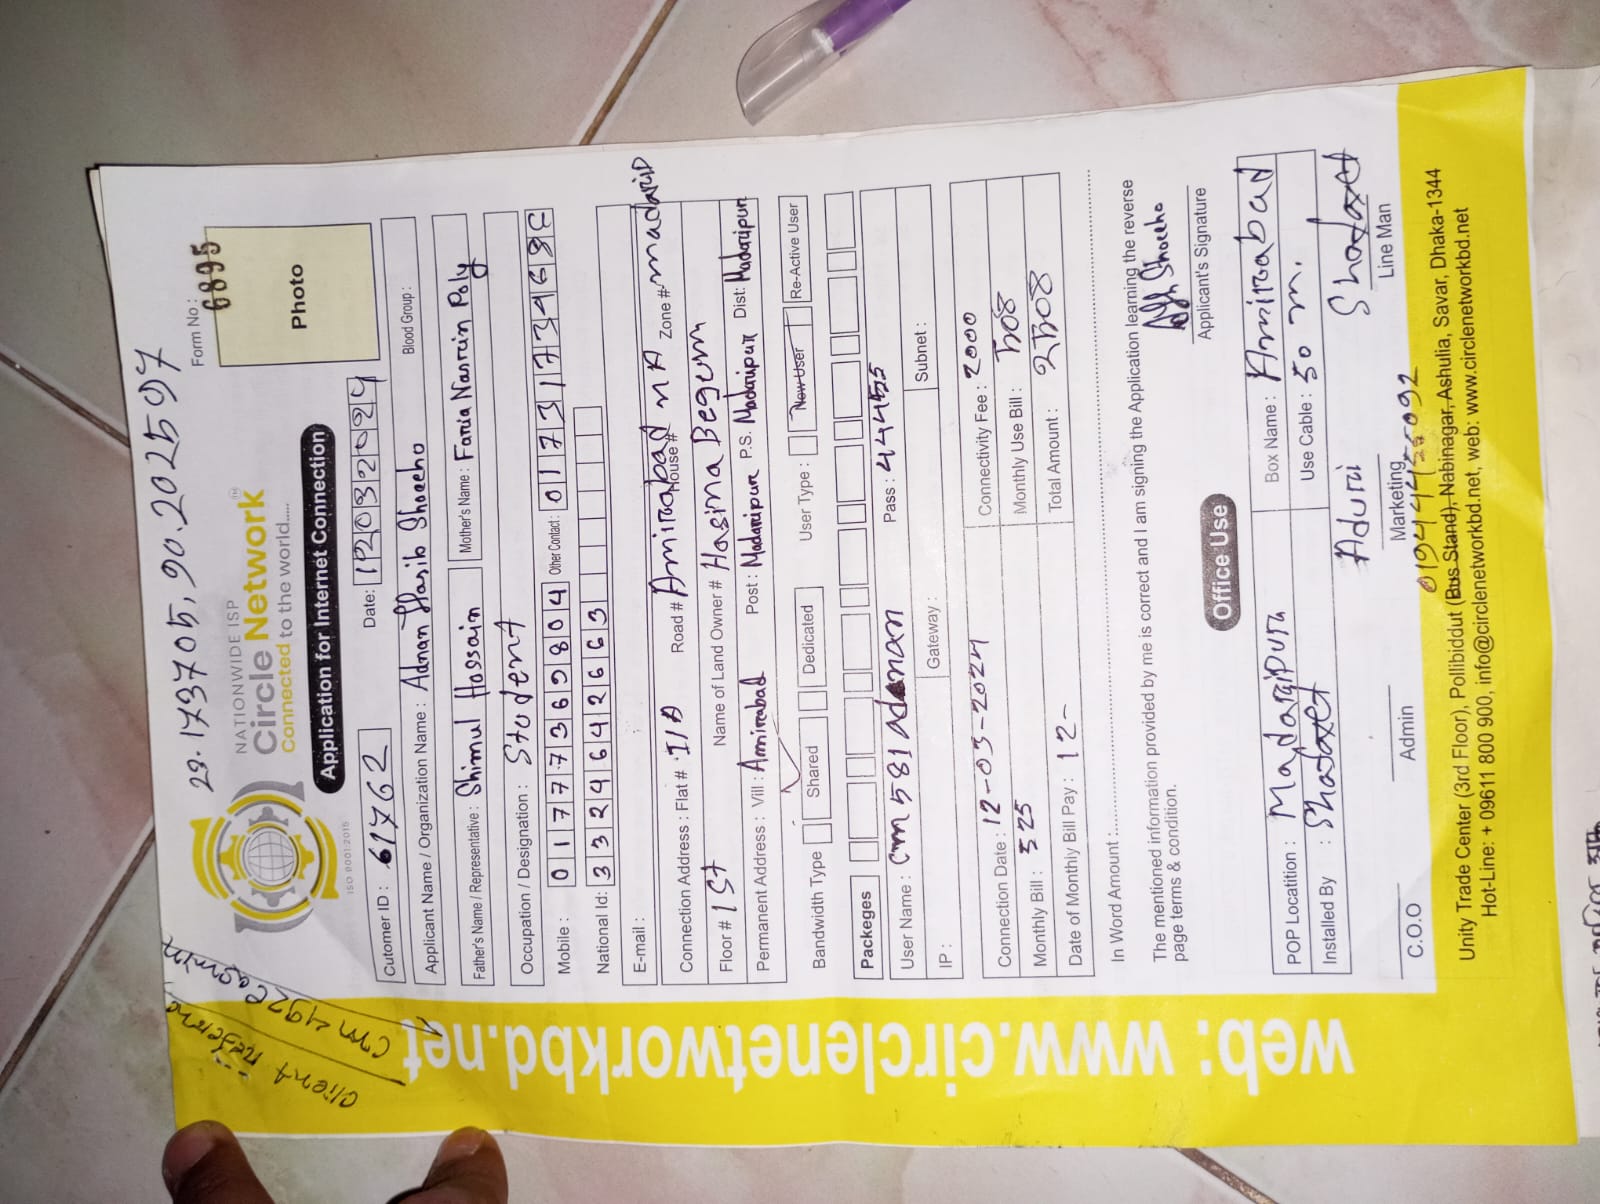 23.173705, 90.202597
Form No.: 6895
NATIONWIDE ISP
Circle Network
Connected to the world.....
ISO 9001:2015
Application for Internet Connection
Photo
Client Reference
Cutomer ID : 61762 Date: 12032024
Applicant Name / Organization Name : Adnan Hasib Blood Group :
Father's Name / Representative : Shimul Hossain Mother's Name : Faria Nasrein Poly
Occupation / Designation : Student
Mobile : 01777369804 Other Contact:
National Id: 3324642663
E-mail :
Connection Address : Flat # Road # Amirabad House # Zone #
Floor # 1st Name of Land Owner # Hasina Begum
Permanent Address : Vill : Amirabad Post : Madaripur P.S. Madaripur Dist: Madaripur
Bandwidth Type Shared Dedicated User Type : New User Re-Active User
Packeges
User Name : cm 581 adnan Pass : 44455
IP : Gateway : Subnet :
Connection Date : 12-03-2024 Connectivity Fee : 2000
Monthly Bill : 525 Monthly Use Bill :
Date of Monthly Bill Pay : 12- Total Amount :
In Word Amount :
The mentioned information provided by me is correct and I am signing the Application learning the reverse
page terms & condition.
Applicant's Signature
Office Use
POP Locatition : Box Name : Amirabad
Installed By : Use Cable : 50 m.
C.O.O Admin Marketing Line Man
Unity Trade Center (3rd Floor), Pollibiddut (Bus Stand), Nabinagar, Ashulia, Savar, Dhaka-1344
Hot-Line: + 09611 800 900, info@circlenetworkbd.net, web: www.circlenetworkbd.net
web: www.circlenetworkbd.net